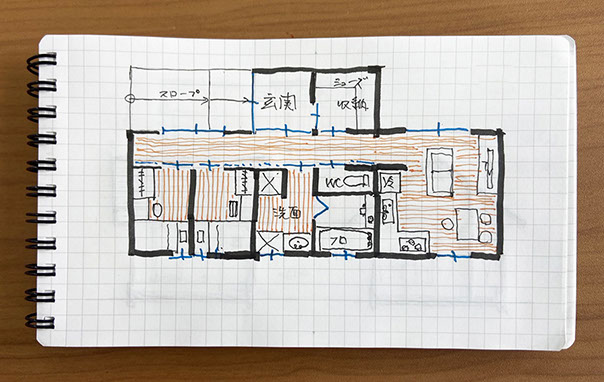 スロープ
玄関
シューズ
収納
WC
冷
洗面
フロ